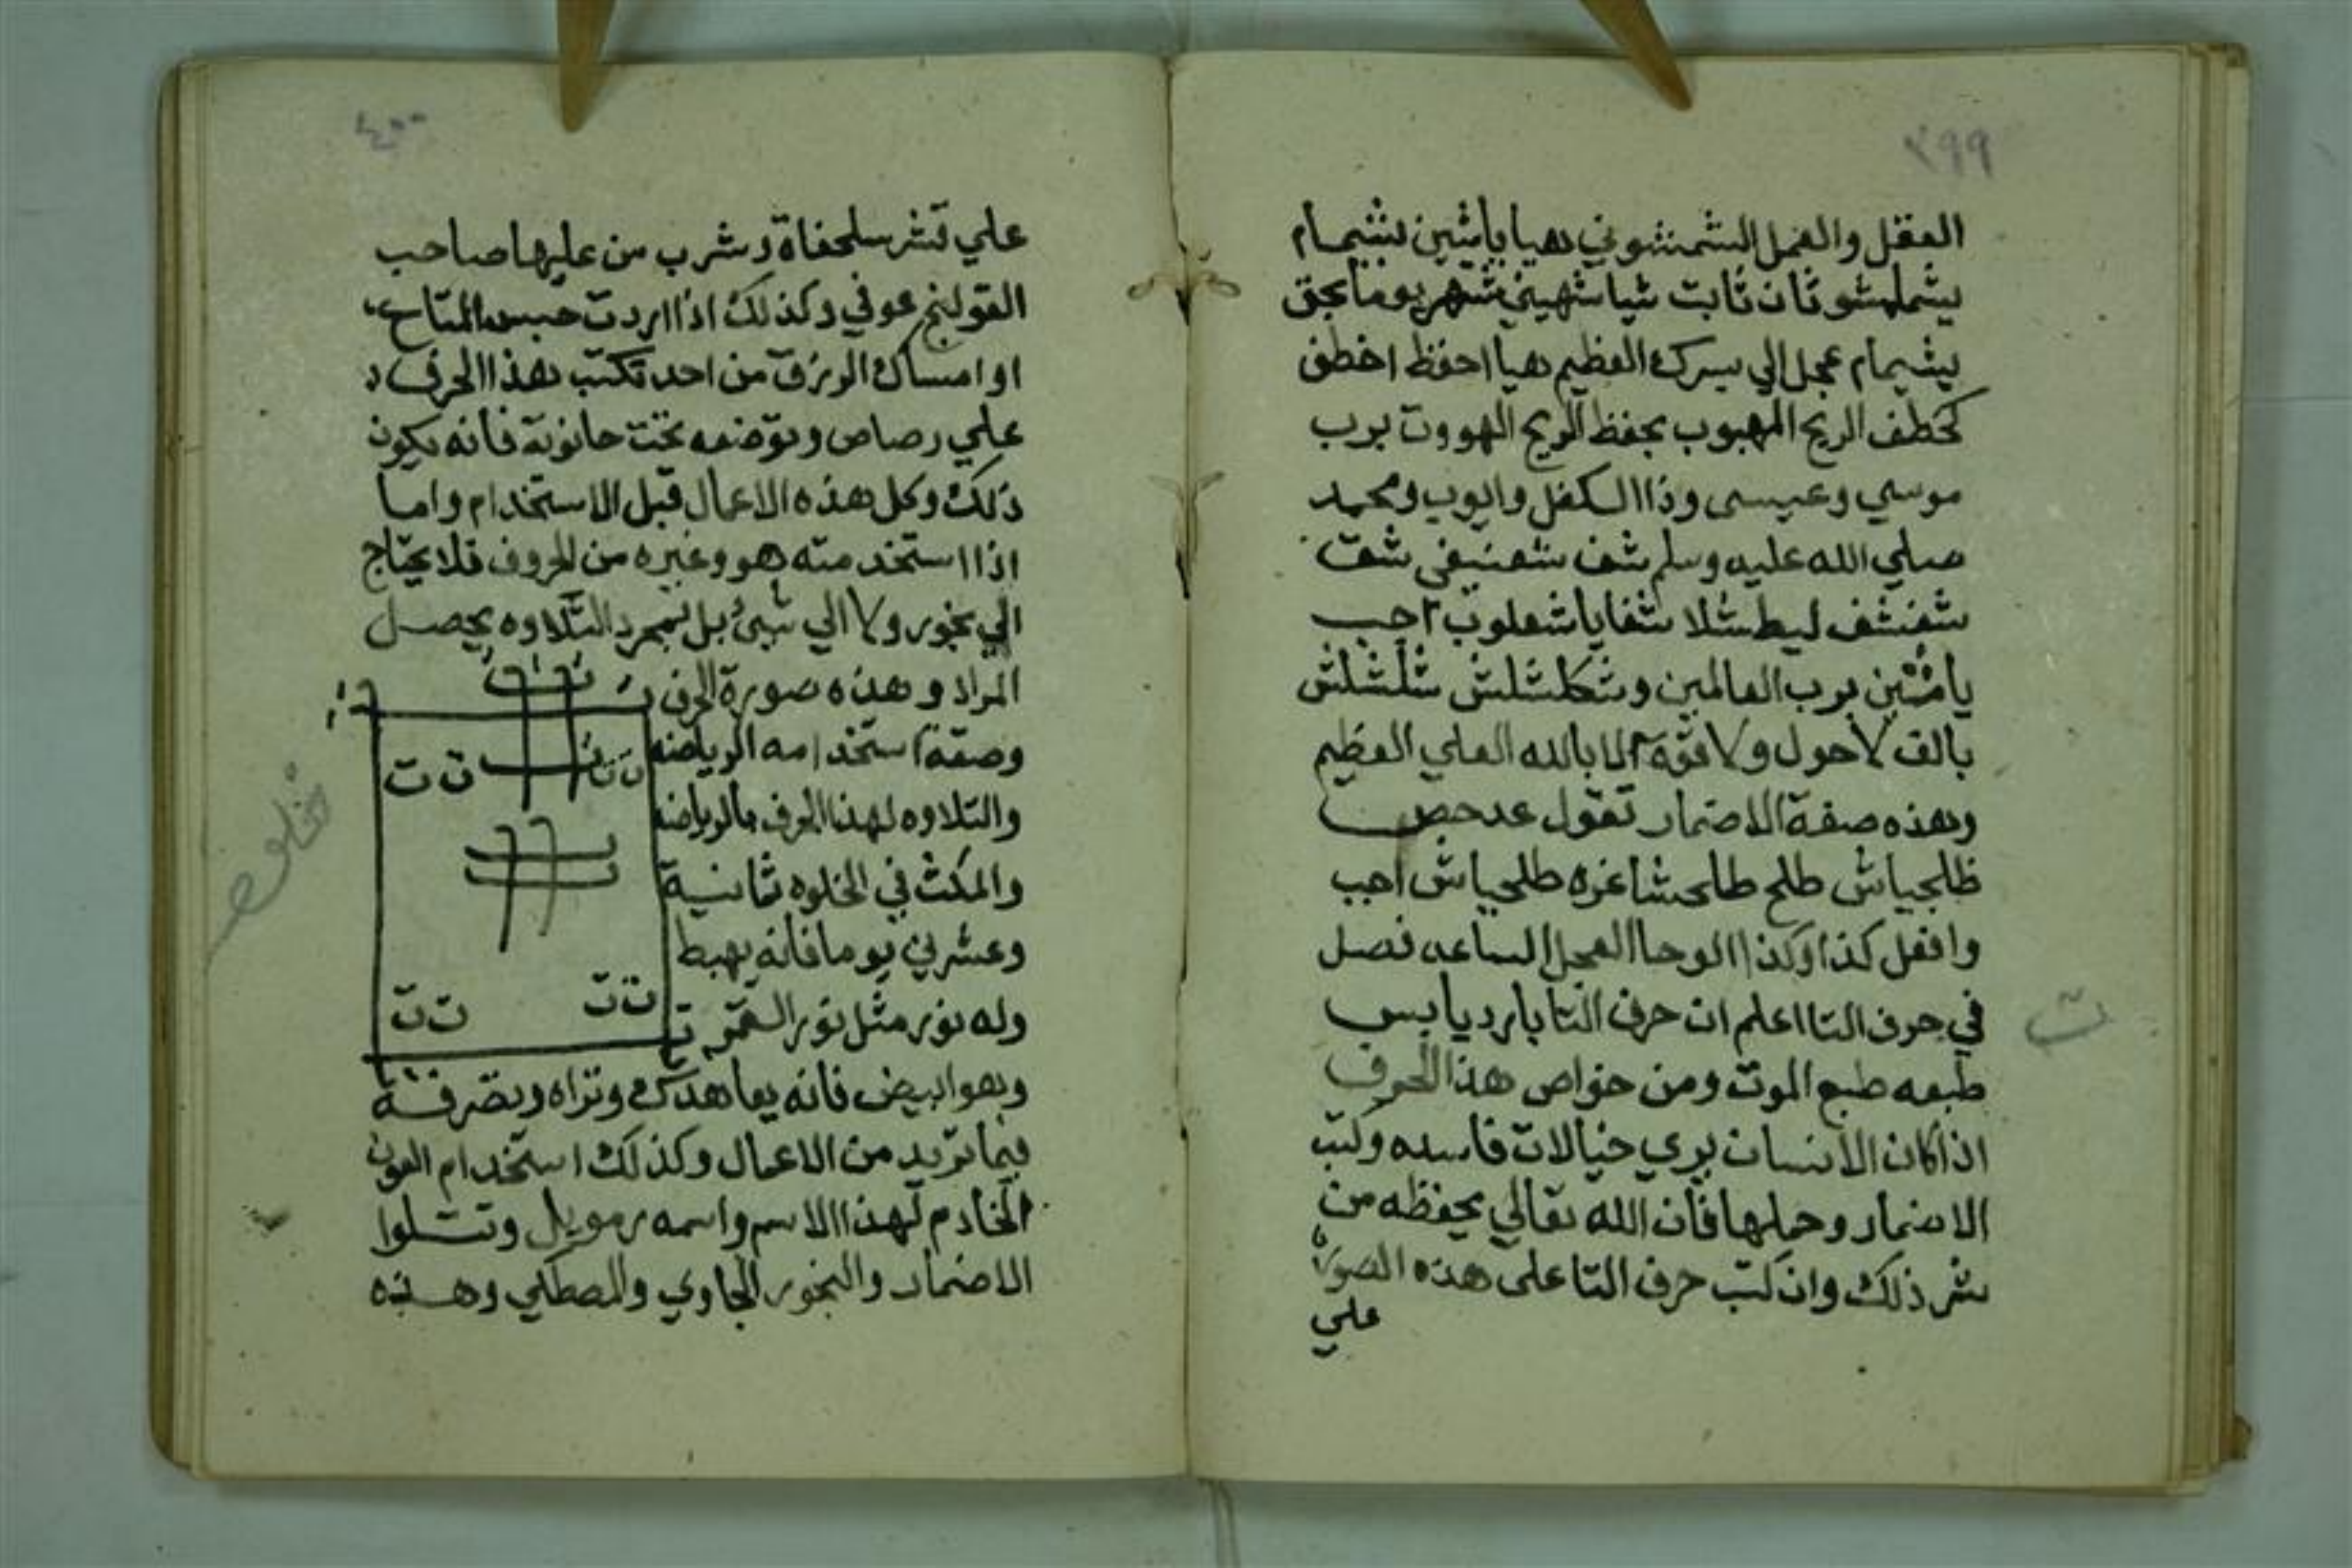 ٣٩٩
العقل والعمل الشمشوني هيا ياشين بشيمام
يشملهشو ثان ثابت شياشهيني شهر يوما بحق
يشيمام عجل الي يسرك العظيم هيا احفظ اخطف
كخطف الريح المهبوب بحفظ الريح الهووت برب
موسي وعيسى وذا الكفل وايوب ومحمد
صلي الله عليه وسلم شف شعنيفي شقت
شفشف ليطشلا شفايا شعلوب اجب
ياشين برب العالمين وشكلشلش شلشلش
بالف لاحول ولا قوة الا بالله العلي العظيم
وهذه صفة الاضمار تقول عدحص
ظلجياش طلح طلحشاغزه طلحياش اجب
وافعل كذا وكذا الوحا العجل الساعه فصل
في حرف التا اعلم ان حرف التا بارد يابس
ت
طبعه طبع الموت ومن خواص هذا الحرف
اذا كان الانسان يري خيالات فاسده وكتب
الاضمار وحملها فان الله تعالي يحفظه من
شر ذلك وان كتب حرف التا على هذه الصورة
علي
٤٠٠
علي قشر سلحفاة وشرب من عليها صاحب
القولنج عوفي وكذلك اذا اردت حبس المتاع
او امساك الرزق من احد تكتب هذا الحرف
علي رصاص وتوضعه تحت حانوته فانه يكون
ذلك وكل هذه الاعمال قبل الاستخدام واما
اذا استخدمته هو وغيره من الحروف فلا يحتاج
الي بخور ولا الي شيئ بل بمجرد التلاوه يحصل
المراد وهذه صورة الحرف
وصفة استخدامه الرياضه
والتلاوه لهذا الحرف بالرياضه
والمكث في الخلوه ثمانية
وعشرين يوما فانه يهبط
وله نور مثل نور القمر
وهو ابيض فانه يعاهدك وتراه وتصرفه
فيما تريد من الاعمال وكذلك استخدام العون
الخادم لهذا الاسم واسمه رمويل وتتلوا
الاضمار والبخور الجاوي والمصطكي وهذه
ت ت
ت ت
ت ت
ت ت